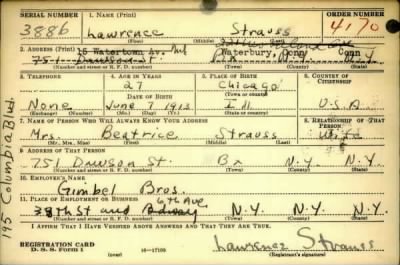 SERIAL NUMBER 1. NAME (Print) ORDER NUMBER
3886 Lawrence Strauss 4170
(First) (Middle) (Last)
2. ADDRESS (Print)
15 Watertown Av. Waterbury, Conn Conn
751 Dawson St. Bx N.Y
(Number and street or R. F. D. number) (Town) (County) (State)
3. TELEPHONE 4. AGE IN YEARS 5. PLACE OF BIRTH 6. COUNTRY OF CITIZENSHIP
27 Chicago
DATE OF BIRTH (Town or county)
None June 7 1913 Ill. U.S.A
(Exchange) (Number) (Mo.) (Day) (Yr.) (State or country)
7. NAME OF PERSON WHO WILL ALWAYS KNOW YOUR ADDRESS 8. RELATIONSHIP OF THAT PERSON
Mrs. Beatrice Strauss wife
(Mr., Mrs., Miss) (First) (Middle) (Last)
9. ADDRESS OF THAT PERSON
751 Dawson St. Bx N.Y. N.Y.
(Number and street or R. F. D. number) (Town) (County) (State)
10. EMPLOYER'S NAME
Gimbel Bros.
11. PLACE OF EMPLOYMENT OR BUSINESS 6th Ave
38th St and Bdway N.Y. N.Y.
(Number and street or R. F. D. number) (Town) (County) (State)
I AFFIRM THAT I HAVE VERIFIED ABOVE ANSWERS AND THAT THEY ARE TRUE.
REGISTRATION CARD
D. S. S. Form 1 (over) 16—17105
Lawrence Strauss
(Registrant's signature)
195 Columbia Blvd.